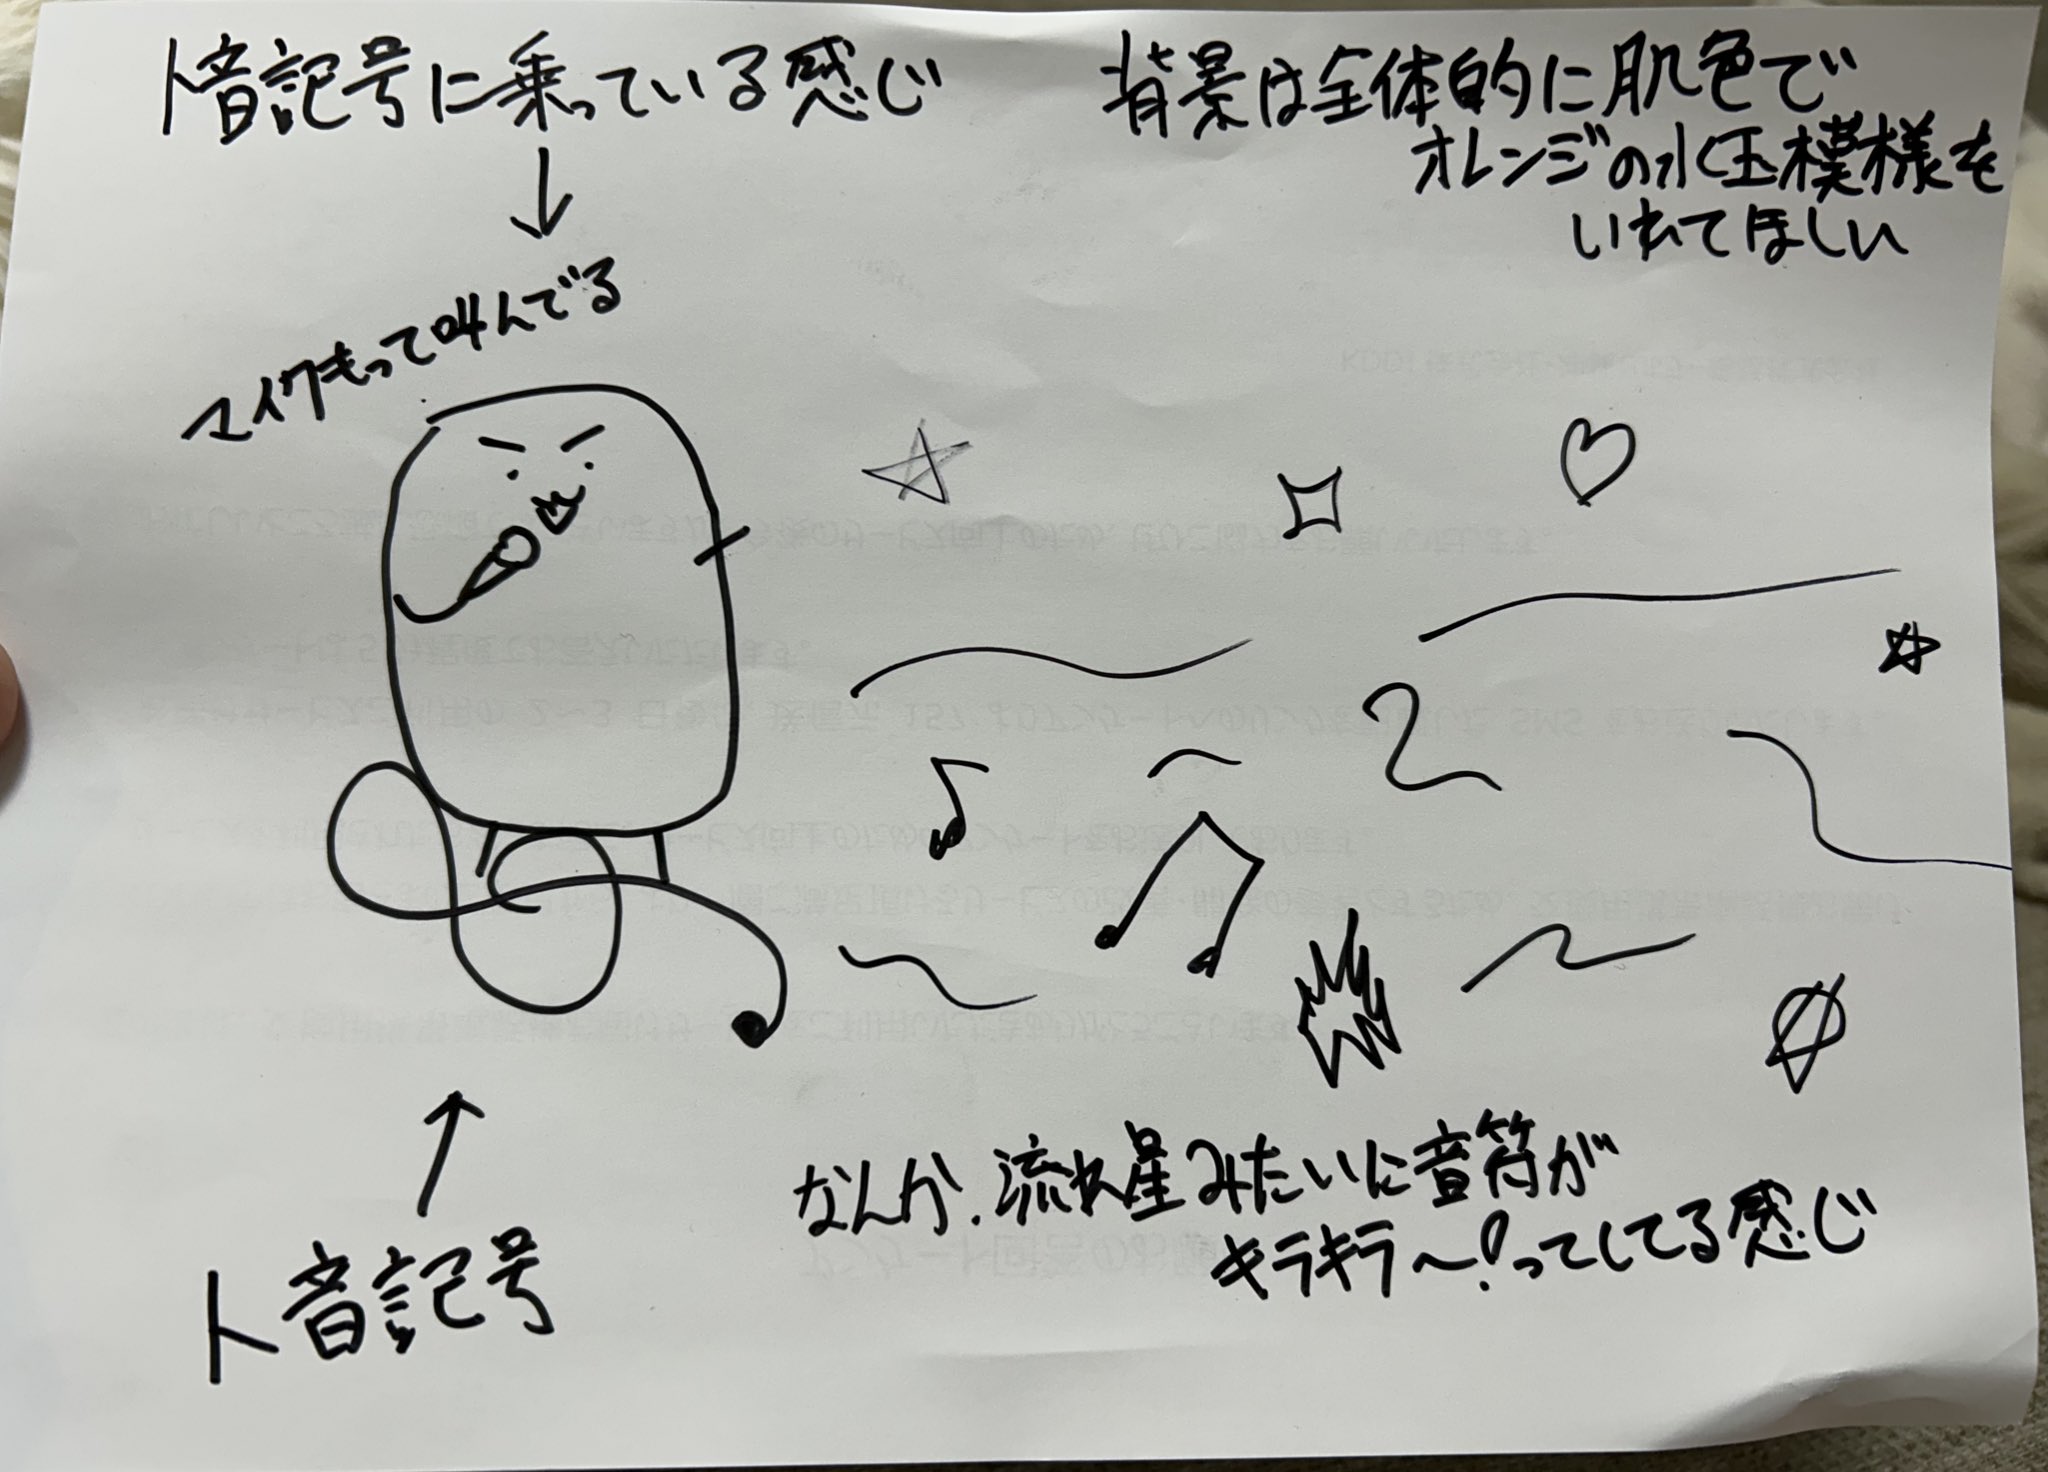 ト音記号に乗っている感じ
背景は全体的に肌色で
オレンジの水玉模様を
いれてほしい
マイクもって叫んでる
なんか、流れ星みたいに音符が
キラキラ〜!ってしてる感じ
ト音記号